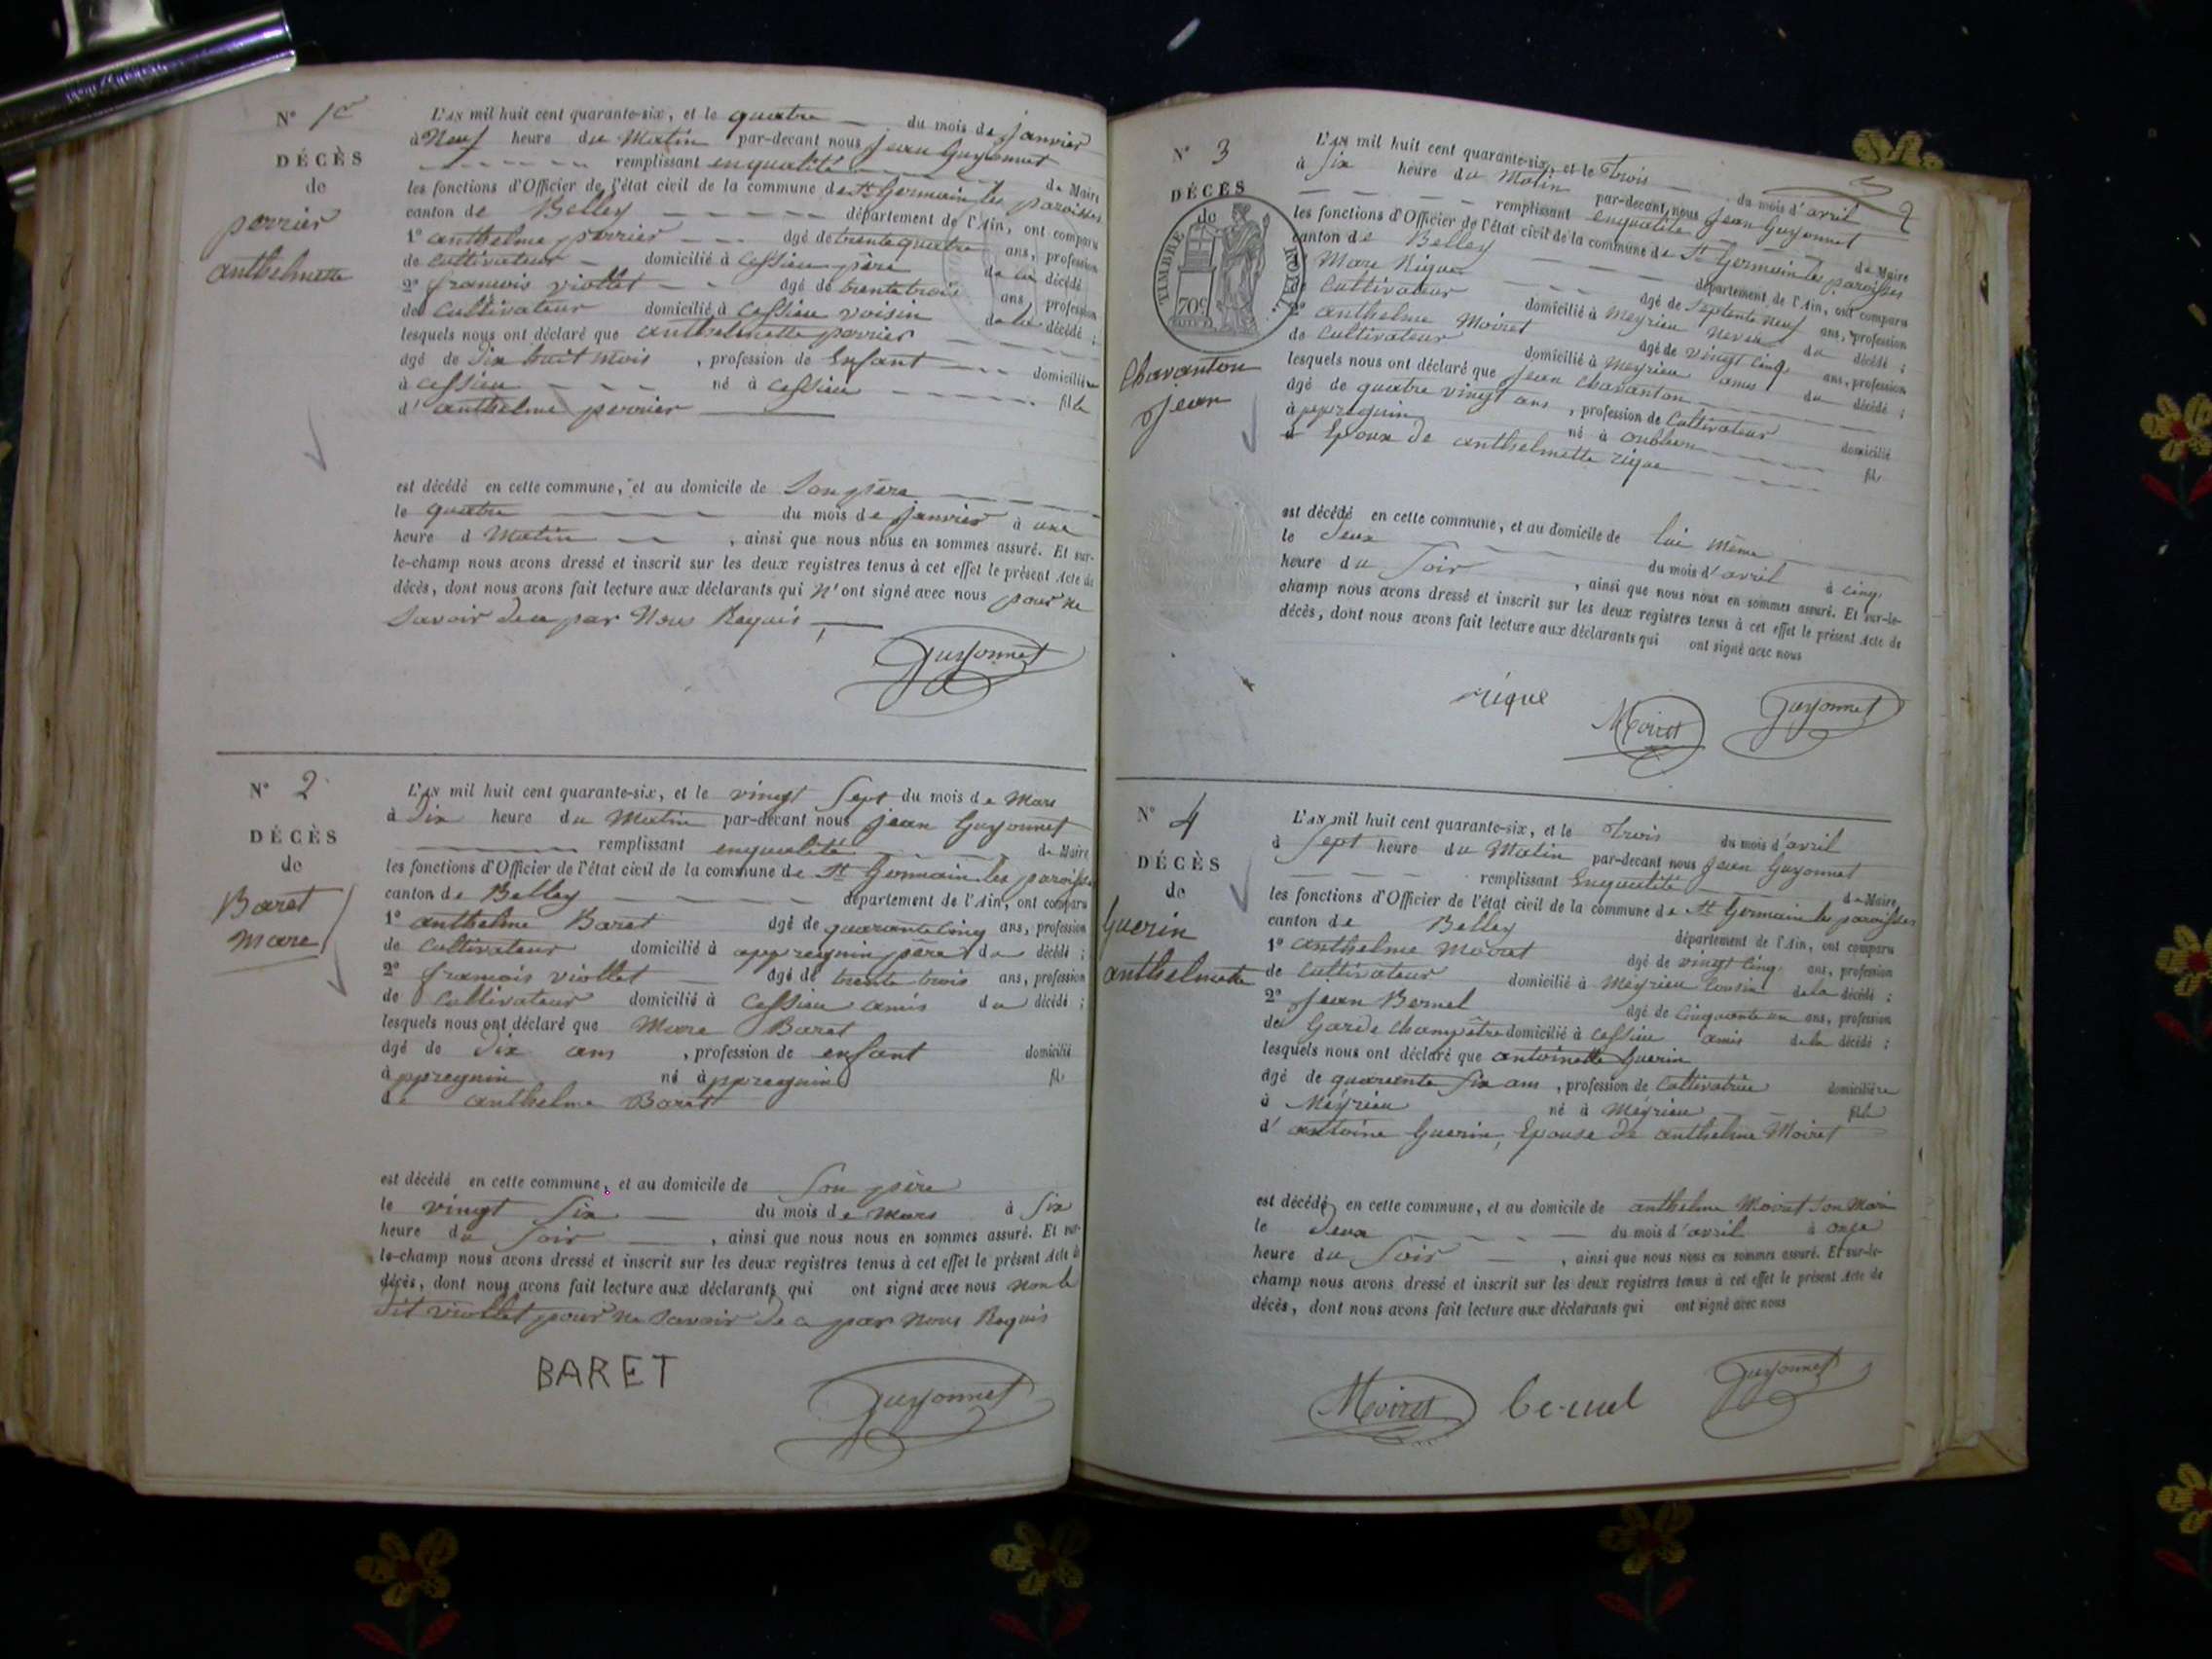 N° 1er
DÉCÈS
de
perrier
anthelmette
L'AN mil huit cent quarante-six, et le quatre du mois de janvier
à Neuf heure du Matin par-devant nous jean Guyonnet
remplissant en qualité de Maire
les fonctions d'Officier de l'état civil de la commune de St Germain les paroisses
canton de Belley département de l'Ain, ont comparu
1° anthelme perrier âgé de trente quatre ans, profession
de cultivateur domicilié à Cessieu père de la décédé
2° francois viollet âgé de trente trois ans, profession
de Cultivateur domicilié à Cessieu voisin de la décédé ;
lesquels nous ont déclaré que anthelmette perrier
âgé de dix huit mois , profession de Enfant domicilière
à Cessieu né à Cessieu fille
d' anthelme perrier
est décédé en cette commune, et au domicile de Son père
le quatre du mois de janvier à une
heure d Matin , ainsi que nous nous en sommes assuré. Et sur-
le-champ nous avons dressé et inscrit sur les deux registres tenus à cet effet le présent Acte de
décès, dont nous avons fait lecture aux déclarants qui N'ont signé avec nous pour ne
Savoir de ce par Nous Requis
Guyonnet
N° 2
DÉCÈS
de
Baret
Marc
L'AN mil huit cent quarante-six, et le vingt Sept du mois de Mars
à Dix heure du Matin par-devant nous jean Guyonnet
remplissant en qualité de Maire
les fonctions d'Officier de l'état civil de la commune de St Germain les paroisses
canton de Belley département de l'Ain, ont comparu
1° anthelme Baret âgé de quarante cinq ans, profession
de Cultivateur domicilié à appregnin père du décédé ;
2° francois viollet âgé de trente trois ans, profession
de Cultivateur domicilié à Cessieu amis du décédé ;
lesquels nous ont déclaré que Marc Baret
âgé de dix ans , profession de enfant domicilié
à ppregnin né à ppregnin fils
de anthelme Baret
est décédé en cette commune, et au domicile de Son père
le vingt Six du mois de Mars à Six
heure du Soir , ainsi que nous nous en sommes assuré. Et sur-
le-champ nous avons dressé et inscrit sur les deux registres tenus à cet effet le présent Acte de
décès, dont nous avons fait lecture aux déclarants qui ont signé avec nous non le
dit viollet pour ne Savoir de ce par Nous Requis
BARET
Guyonnet
N° 3
DÉCÈS
de
TIMBRE ROYAL
70c
Chavanton
Jean
L'AN mil huit cent quarante-six, et le Trois du mois d'avril
à Six heure du Matin par-devant nous Jean Guyonnet
remplissant en qualité de Maire
les fonctions d'Officier de l'état civil de la commune de St Germain les paroisses
canton de Belley département de l'Ain, ont comparu
Marc Rigue âgé de Septente Neuf ans, profession
Cultivateur domicilié à Meyrieu Neveu du décédé ;
2° anthelme Moiret âgé de vingt Cinq ans, profession
de Cultivateur domicilié à Meyrieu amis du décédé ;
lesquels nous ont déclaré que Jean Chavanton
âgé de quatre vingt ans , profession de Cultivateur domicilié
à ppregnin né à fils
d Epoux de anthelmette rigue
est décédé en cette commune, et au domicile de lui même
le Deux du mois d'avril à Cinq
heure du Soir , ainsi que nous nous en sommes assuré. Et sur-le-
champ nous avons dressé et inscrit sur les deux registres tenus à cet effet le présent Acte de
décès, dont nous avons fait lecture aux déclarants qui ont signé avec nous
rigue
Moiret
Guyonnet
N° 4
DÉCÈS
de
Guerin
anthelmette
L'AN mil huit cent quarante-six, et le Trois du mois d'avril
à Sept heure du Matin par-devant nous Jean Guyonnet
remplissant En qualité de Maire
les fonctions d'Officier de l'état civil de la commune de St Germain les paroisses
canton de Belley département de l'Ain, ont comparu
1° anthelme Moiret âgé de vingt Cinq ans, profession
de Cultivateur domicilié à Meyrieu Cousin de la décédé ;
2° jean Bernel âgé de Cinquante un ans, profession
de Garde Champêtre domicilié à Cessieu amis de la décédé ;
lesquels nous ont déclaré que antoinette Guerin
âgé de quarente Six ans , profession de Cultivatrice domicilière
à Meyrieu né à Meyrieu fille
d' antoine Guerin, Epouse de anthelme Moiret
est décédé en cette commune, et au domicile de anthelme Moiret Son Mari
le Deux du mois d'avril à onze
heure du Soir , ainsi que nous nous en sommes assuré. Et sur-le-
champ nous avons dressé et inscrit sur les deux registres tenus à cet effet le présent Acte de
décès, dont nous avons fait lecture aux déclarants qui ont signé avec nous
Moiret
bernel
Guyonnet